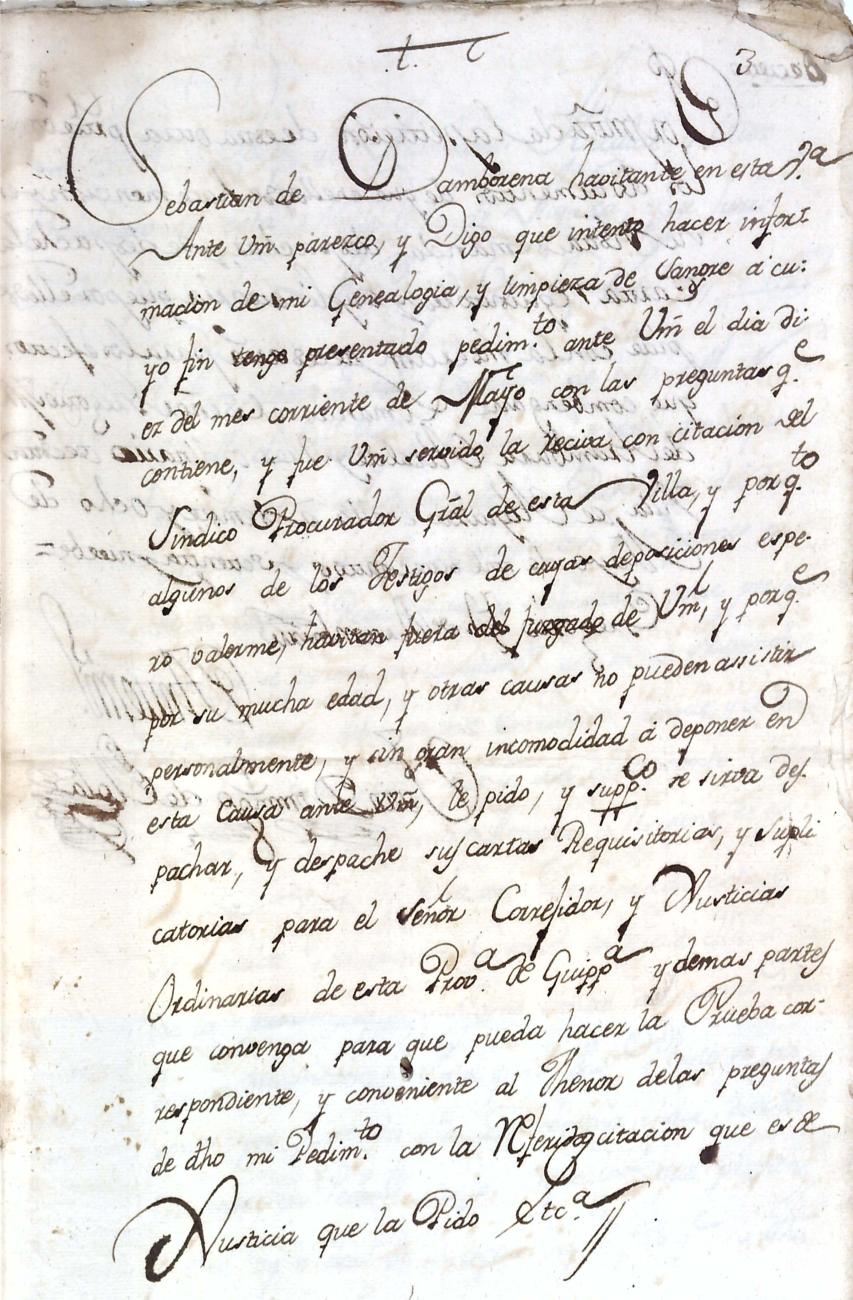 t.
3
Sebastian de Damborena havitante en esta V.ª
Ante Vm̃ parezco, y Digo que intento hacer infor=
macion de mi Genealogia, y limpieza de Sangre â cu=
yo fin tengo presentado pedim.to ante Vm̃ el dia di=
ez del mes corriente de Mayo con las preguntas q.e
contiene, y fue Vm̃ servido, la reciva con citacion del
Sindico Procurador Gr̃al de esta Villa, y por q.to
algunos de los Testigos de cuyas deposiciones espe=
ro valerme, havitan fuera del juzgado de Vm̃, y porq.e
por su mucha edad, y otras causas no pueden assistir
personalmente, y sin gran incomodidad â deponer en
esta Causa ante Vm̃, le pido, y supp.co se sirva des=
pachar, y despache sus cartas Requisitorias, y supli
catorias para el señor Corregidor, y Justicias
Ordinarias de esta Prov.a de Guipp.a y demas partes
que convenga para que pueda hacer la Prueba cor=
respondiente, y conveniente al thenor delas preguntas
de dh̃o mi Pedim.to con la Referida citacion que es de
Justicia que la Pido &tc.a